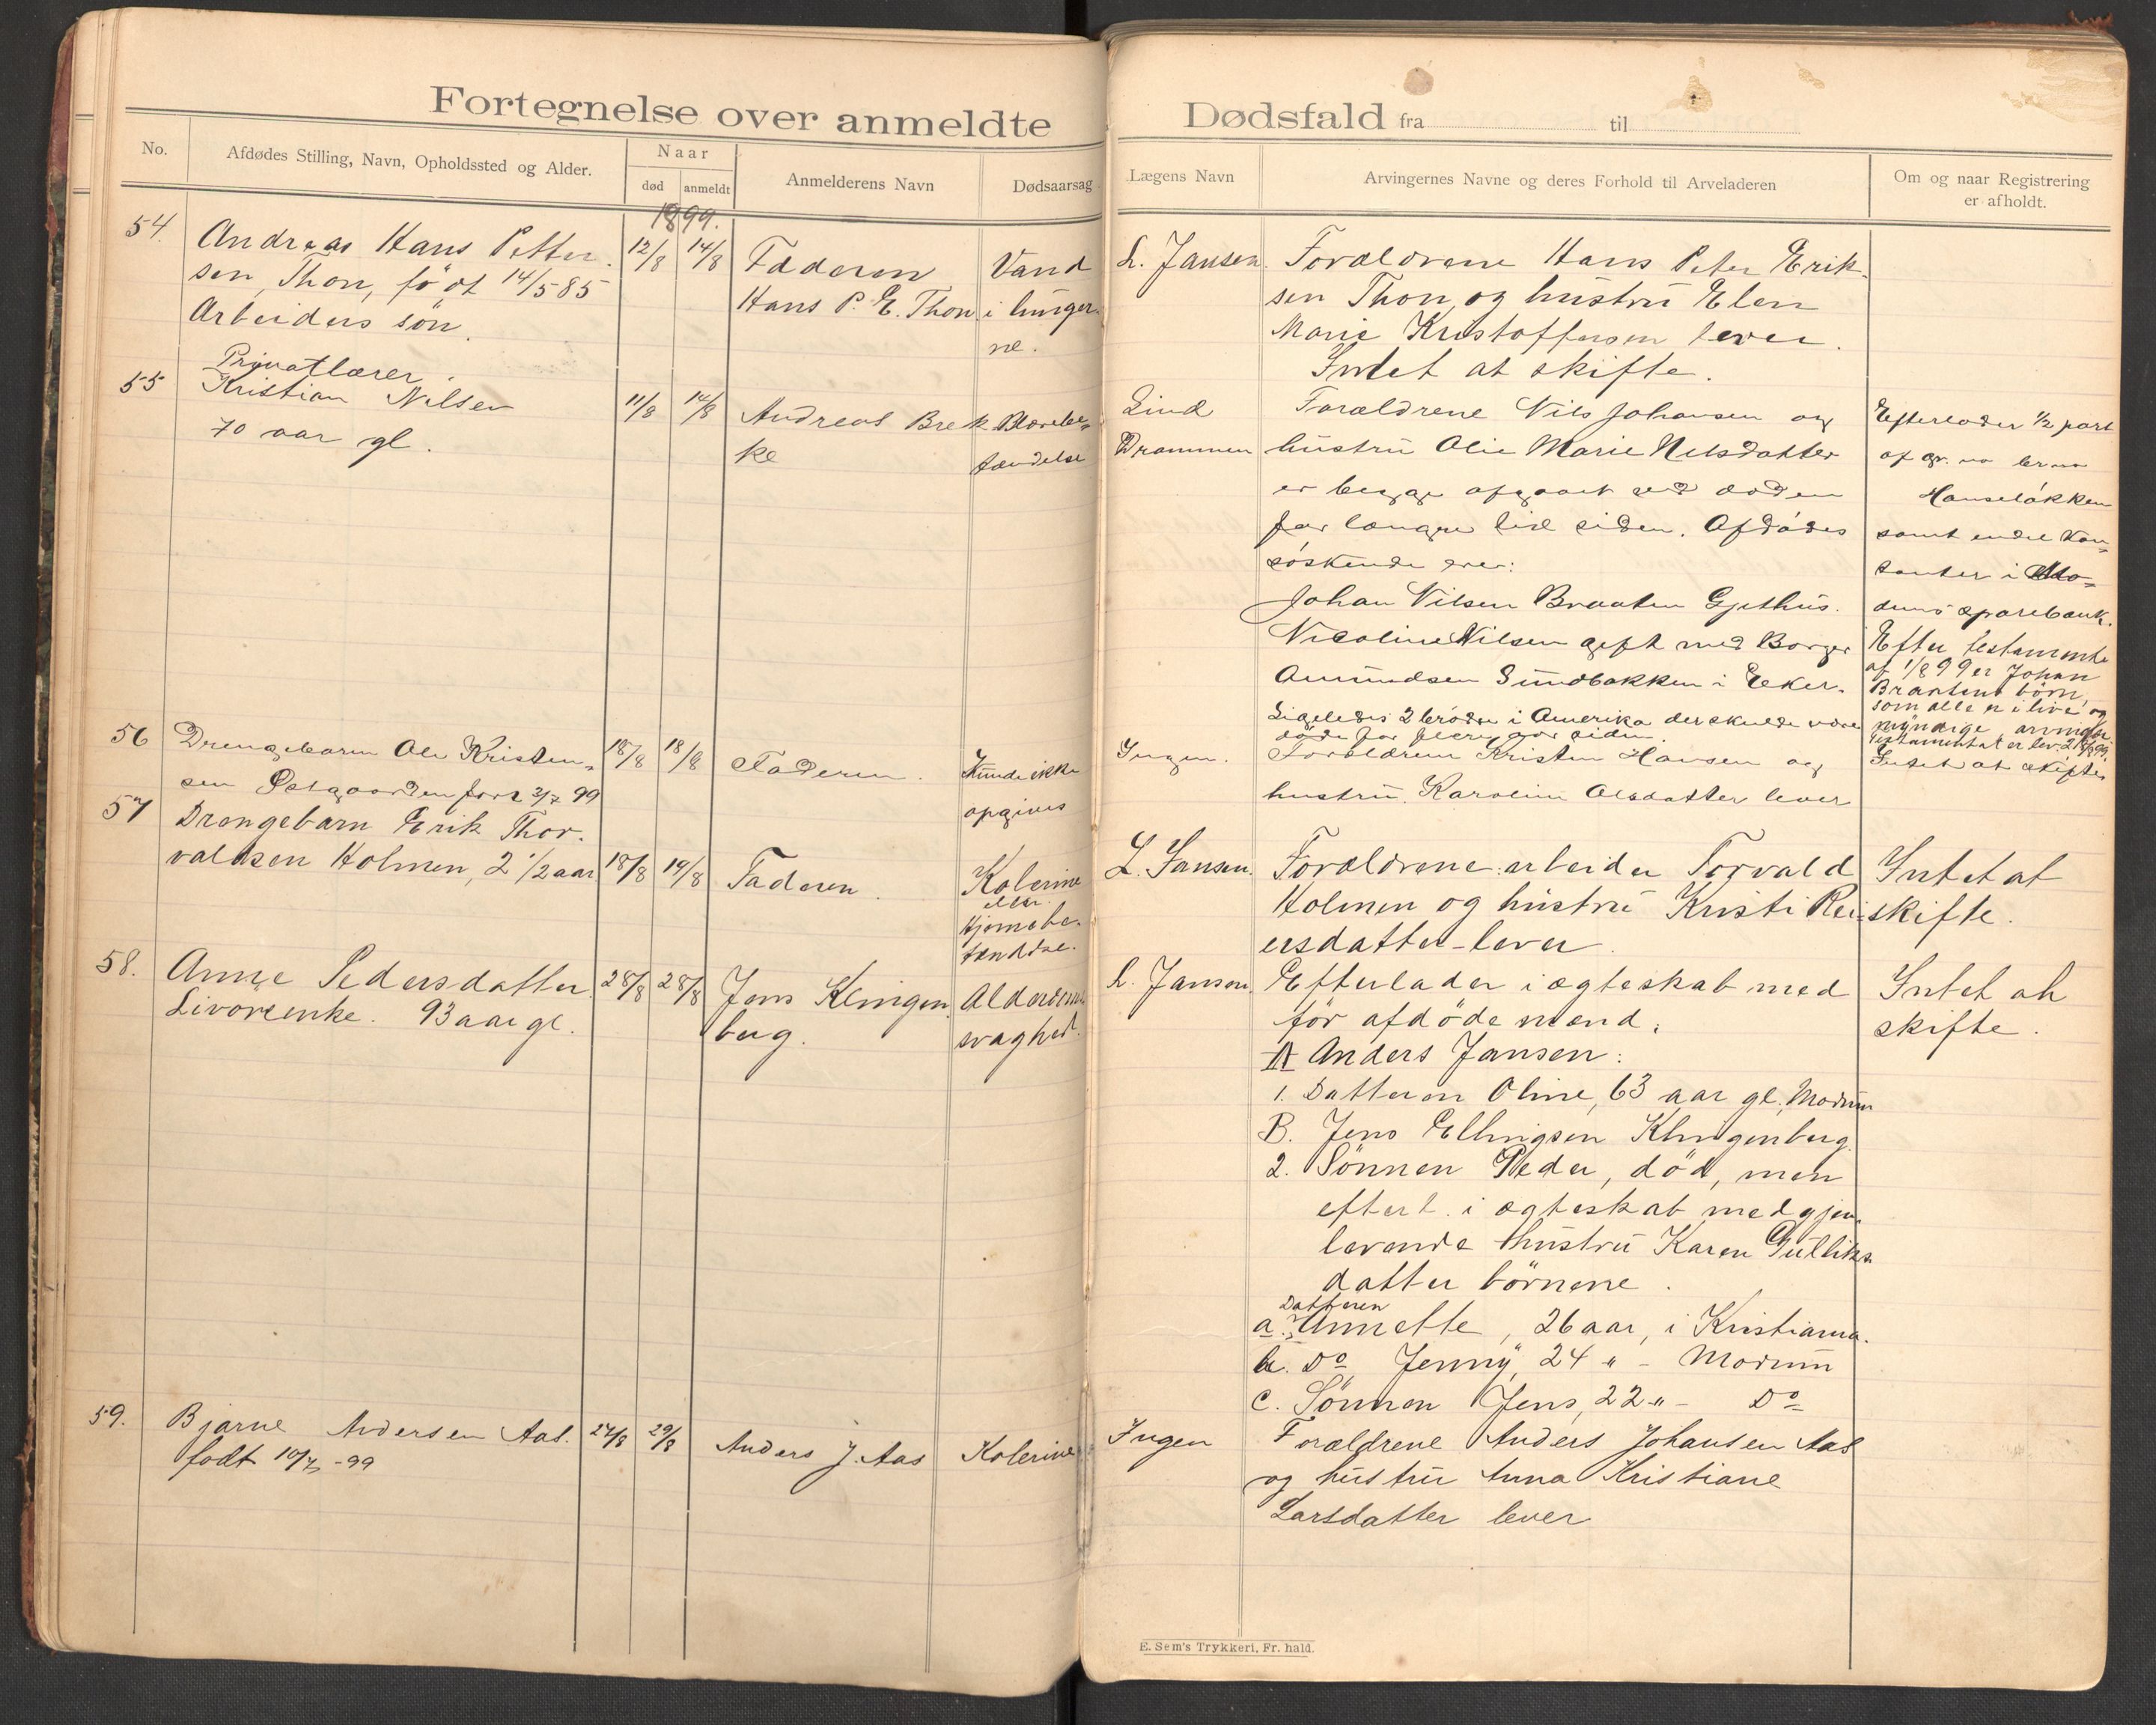 Fortegnelse over anmeldte
No.
Afdødes Stilling, Navn, Opholdssted og Alder.
Naar
død
anmeldt
Anmelderens Navn
Dødsaarsag
1899.
54.
Andreas Hans Petter
sen, Thon, født 14/5 85
Arbeiders søn.
12/8
14/8
Faderen
Hans P. E. Thon
Vand
i lunger
ne.
55
Privatlærer.
Kristian Nilsen
70 aar gl.
11/8
14/8
Andreas Brek
ke
Blærebe=
tændelse
56
Drengebarn Ole Kristen=
sen født 2/7 99
18/8
18/8
Faderen.
Kunde ikke
opgives
57
Drengebarn Erik Thor.
valdsen Holmen, 2 1/2 aar
18/8
19/8
Faderen.
Kolerine
eller
Hjernebe.
tændelse.
58.
Anne Pedersdatter
Livørenke. 93 aar gl.
28/8
28/8
Jens Klingen
berg.
Alderdoms
svaghed.
59.
Bjarne Andersen Aas.
født 10/7 -99
27/8
29/8
Anders J. Aas
Kolerine
Dødsfald fra til
Lægens Navn
Arvingernes Navne og deres Forhold til Arveladeren
Om og naar Registrering
er afholdt.
L. Jansen.
Forældrene Hans Peter Erik.
sen Thon, og hustru Elen
Marie Kristoffersen lever.
Intet at skifte.
Lind
Drammen
Forældrene Nils Johansen og
hustru Olie Marie Nilsdatter
er begge afgaaet ved døden
for længre tid siden. Afdødes
søskende er:
Johan Nilsen Braaten Gjethus.
Nicoline Nilsen gift med Borger
Amundsen Sundbakken i Eker.
Ligeledes 2 brødre i Amerika der skulde være
døde for flere aar siden.
Efterlader 1/2 part
af gr. no br. no
Hanseløkken
samt endel kon=
tanter i Mo=
dums sparebank.
Efter testamente
af 1/8 99 er Johan
Braatens børn,
som alle er i live og
myndige arvinger
Ingen.
Forældrene Kristen Hansen og
hustru Karoline Olsdatter lever
Intet at skifte
L. Jansen.
Forældrene: arbeider Torvald
Holmen og hustru Kristi Rei-
ersdatter lever.
Intet at
skifte.
L. Jansen.
Efterlader i ægteskab med
før afdøde mænd:
A Anders Jansen:
1. Datteren Oline, 63 aar gl., Modum
B. Jens Ellingsen Klingenberg.
2. Sønnen Peder, død, men
efterl. i ægteskab med gjen.
levende hustru Karen Gulliks
datter børnene.
Datteren
a. Annette, 26 aar, i Kristiania.
b. Do Jenny, 24 " - Modum
c. Sønnen Jens, 22 " - Do
Intet at
skifte.
Ingen
Forældrene Anders Johansen Aas
og hustru Anna Kristiane
Larsdatter lever
E. Sem's Trykkeri, Fr. hald.